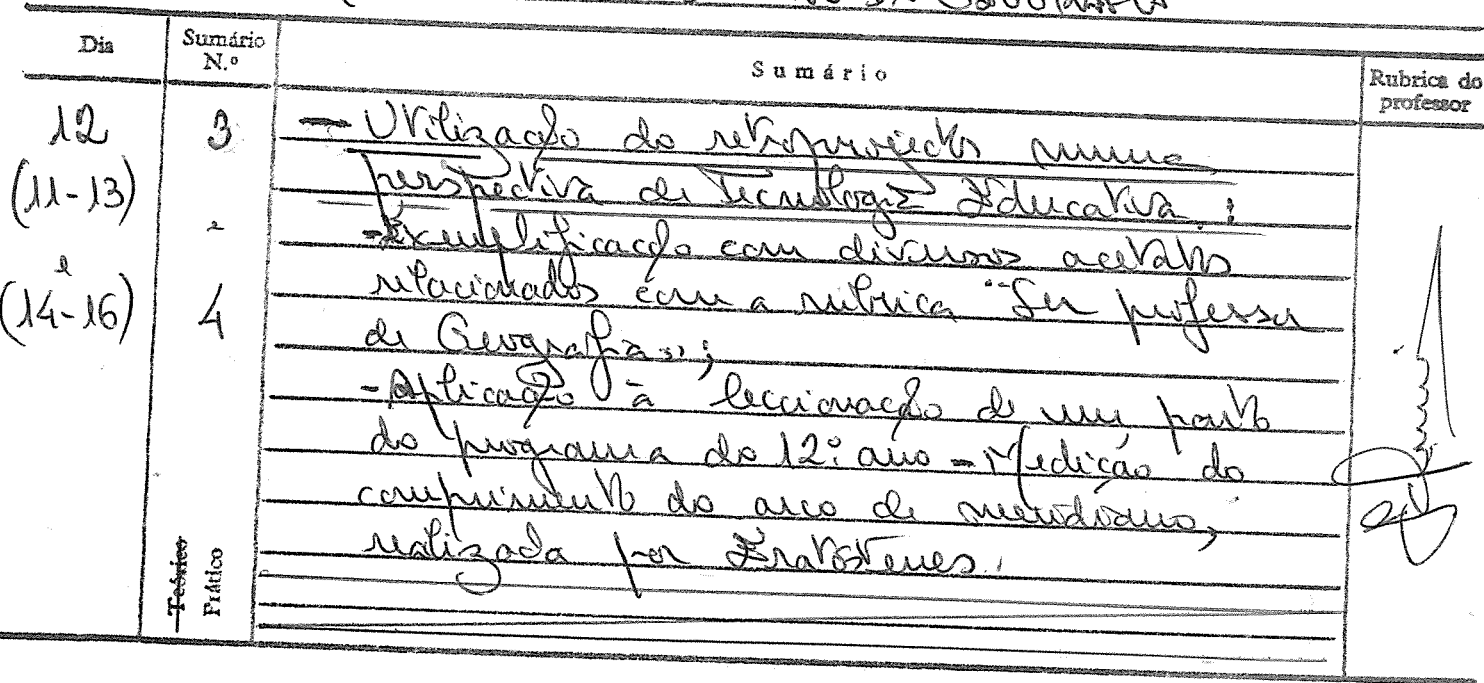 Dia Sumário N.º Sumário Rubrica do professor
12 3 - Utilização do retroprojector numa
(11-13) perspectiva de Tecnologia Educativa:
e - Exemplificação com diversos acetatos
e relacionados com a rubrica "Ser professor
(14-16) 4 de Geografia";
- Aplicação à leccionação de um ponto
do programa do 12.º ano - Medição do
comprimento do arco de meridiano,
realizada por Eratóstenes.
Teórico
Prático